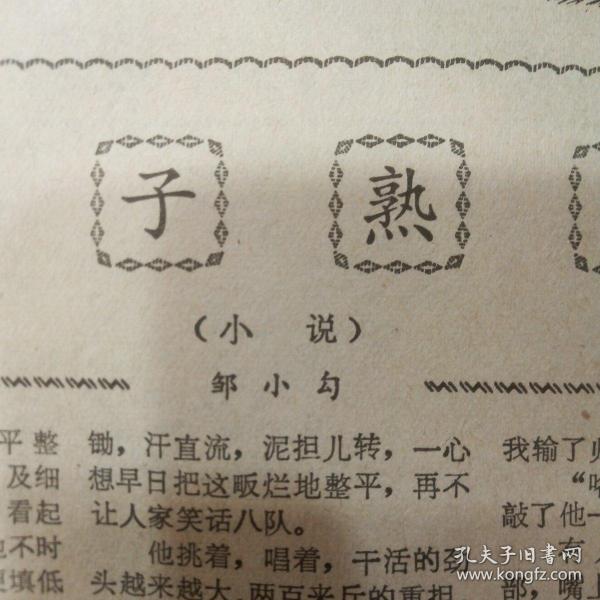 子 熟
（小 说）
邹小勾
平整
及细
看起
也不时
填低
锄，汗直流，泥担儿转，一心
想早日把这畈烂地整平，再不
让人家笑话八队。
他挑着，唱着，干活的劲
头越来越大，两百来斤的重担
我输了
敲了他一
有
部，嘴上
孔夫子旧书网
www.kongfz.com